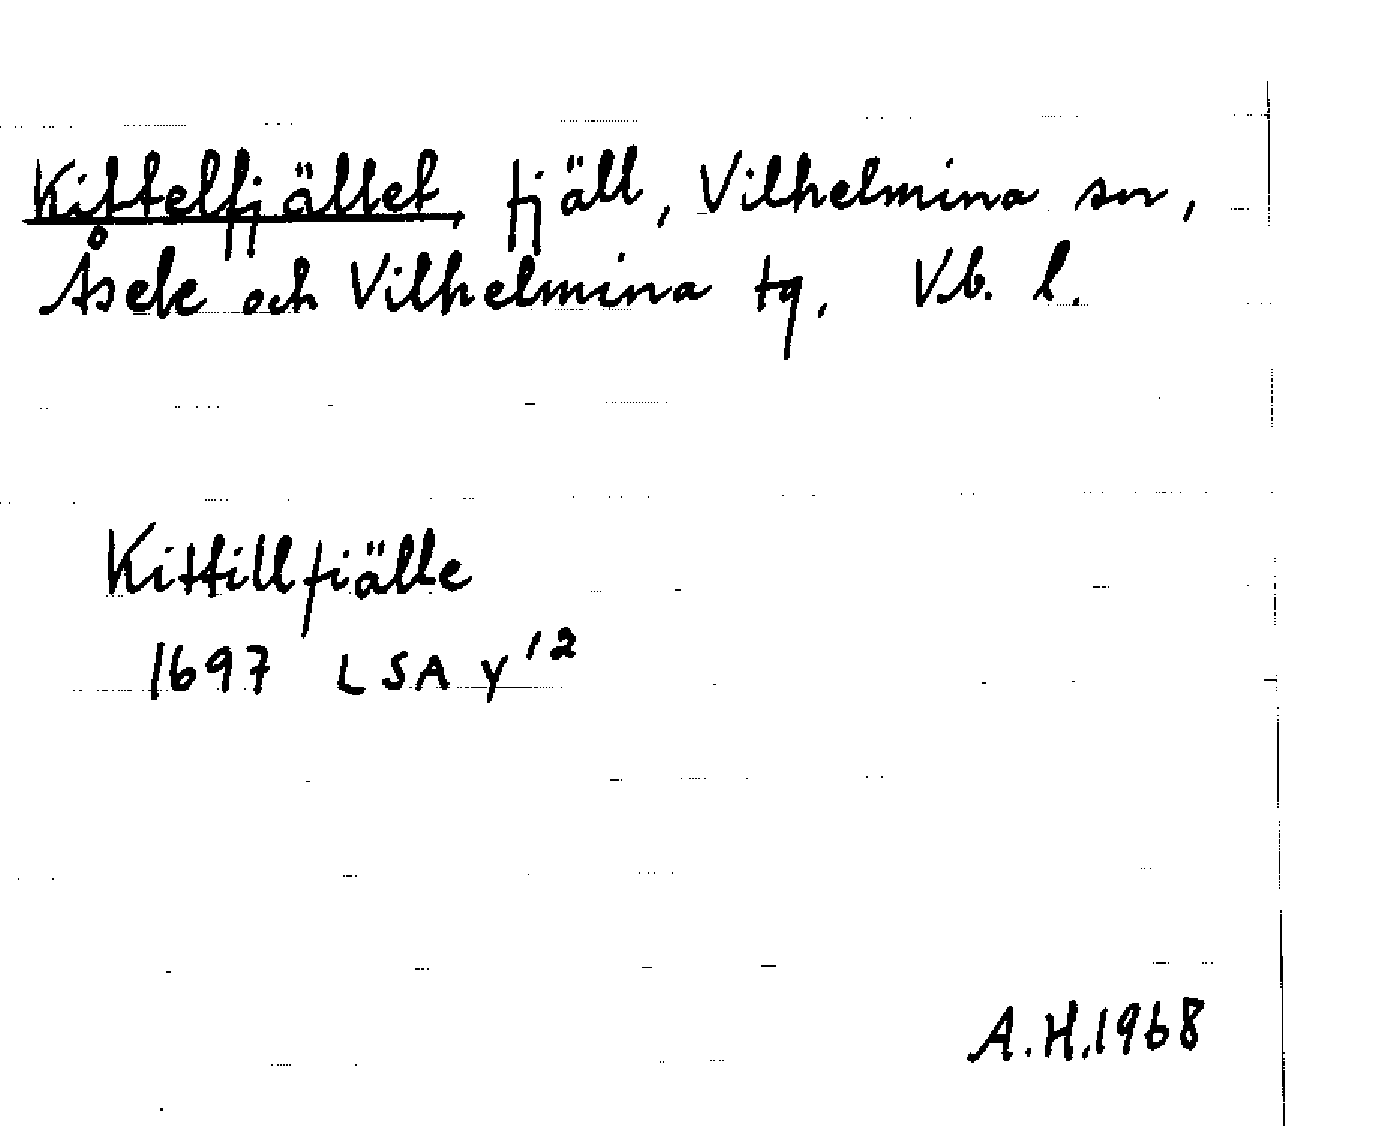 Kittelfjället, fjäll, Vilhelmina sn,
Åsele och Vilhelmina tg, Vb. l.
Kittillfiälle
1697 LSA Y 12
A.H. 1968